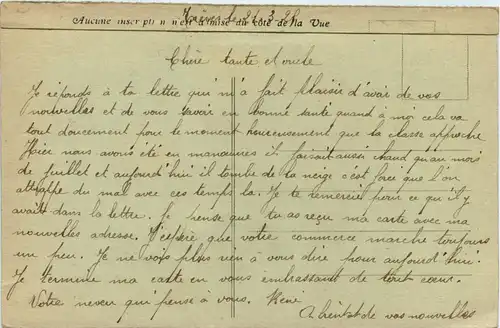 Aucune inscription n'est admise du côté de la Vue
le 21.3.28
Chère tante et oncle
Je réponds à ta lettre qui m'a fait plaisir d'avoir de vos
nouvelles et de vous savoir en bonne santé quand à moi cela va
tout doucement pour le moment heureusement que la classe approche
Hier nous avons été en manœuvres il faisait aussi chaud qu'au mois
de juillet et aujourd'hui il tombe de la neige c'est force que l'on
attrappe du mal avec ces temps la. Je te remercies pour ce qu'il y
avait dans la lettre. Je pense que tu as reçu ma carte avec ma
nouvelles adresse. J'espère que votre commerce marche toujours
un peu. Je ne vois plus rien à vous dire pour aujourd'hui.
Je termine ma carte en vous embrassant de tout cœur.
Votre neveu qui pense à vous. René
A bientôt de vos nouvelles